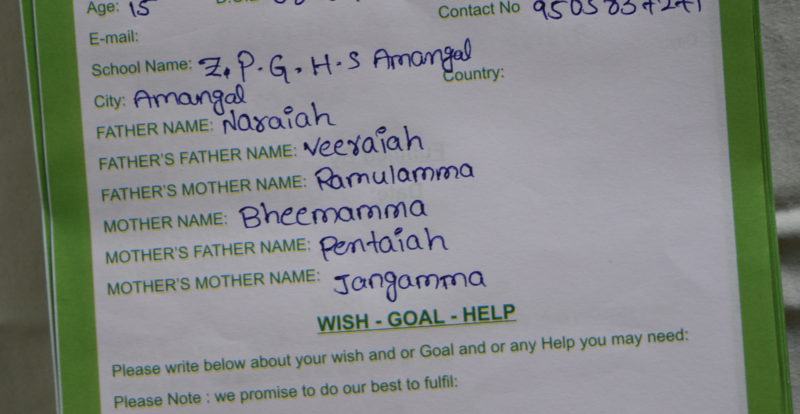 Age: 15
Contact No
E-mail:
School Name: Z.P.G.H.S Amangal
Country:
City: Amangal
FATHER NAME: Naraiah
FATHER'S FATHER NAME: Veeraiah
FATHER'S MOTHER NAME: Ramulamma
MOTHER NAME: Bheemamma
MOTHER'S FATHER NAME: Pentaiah
MOTHER'S MOTHER NAME: Jangamma
WISH - GOAL - HELP
Please write below about your wish and or Goal and or any Help you may need:
Please Note : we promise to do our best to fulfil: